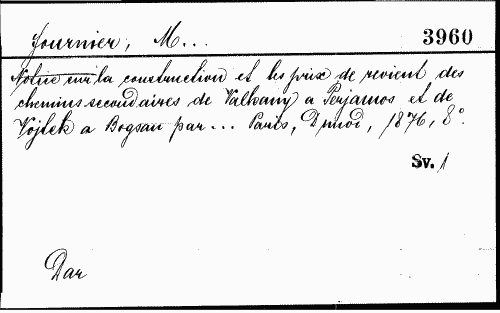 Fournier, M... 3960
Notice sur la construction et les prix de revient des
chemins secondaires de Valkany a Perjamos et de
Vojtek a Bogsan par... Paris, Dunod, 1876, 8°.
Sv. 1
Dar